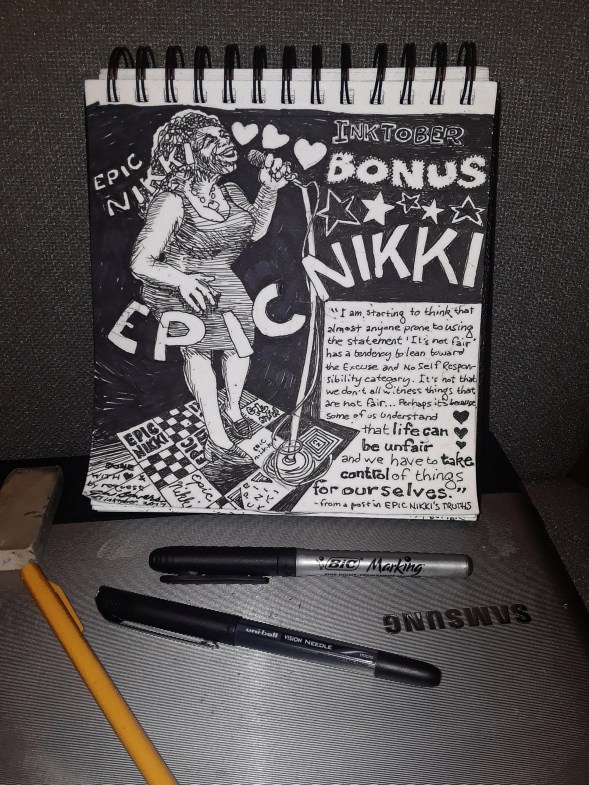 INKTOBER
BONUS
EPIC
NIKKI
EPIC NIKKI
"I am starting to think that
almost anyone prone to using
the statement 'It's not fair'
has a tendency to lean toward
the Excuse and No Self Respon-
sibility category. It's not that
we don't all witness things that
are not fair... Perhaps it's because
some of us understand
that life can
be unfair
and we have to take
control of things
for ourselves."
-from a post in EPIC NIKKI'S TRUTHS
EPIC
NIKKI
EPIC
NIKKI
DONE
WITH
by request
BIC Marking
uni-ball VISION NEEDLE
SAMSUNG